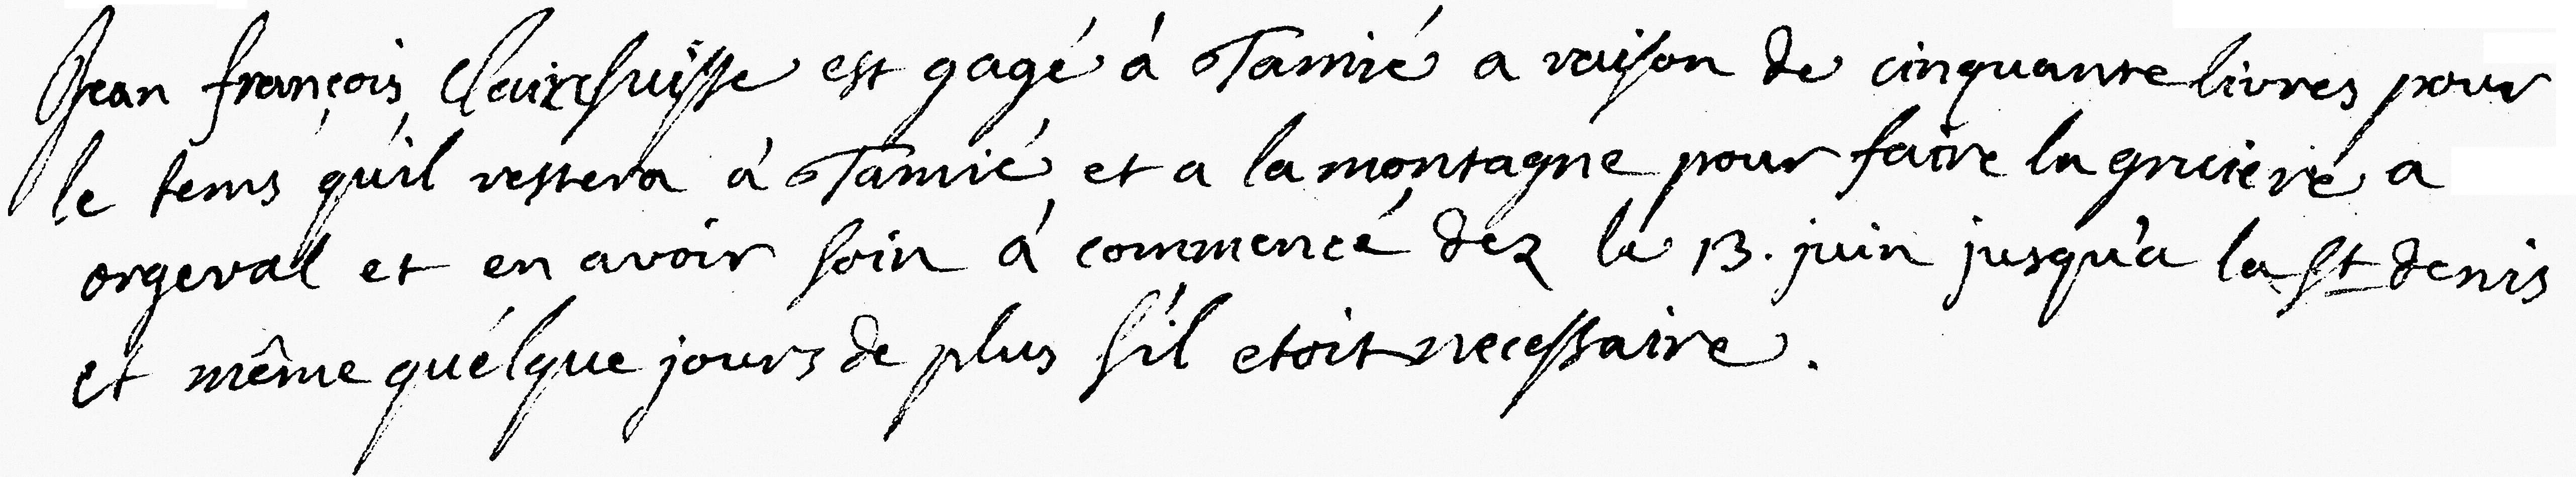 Jean françois Clairsuisse est gagé à Tamié a raison de cinquante livres pour
le tems qu'il restera à Tamié et a la montagne pour faire la gruiere a
orgeval et en avoir soin à commencé dez le 13. juin jusqu'a la St denis
et même quélque jours de plus s'il etoit necessaire.